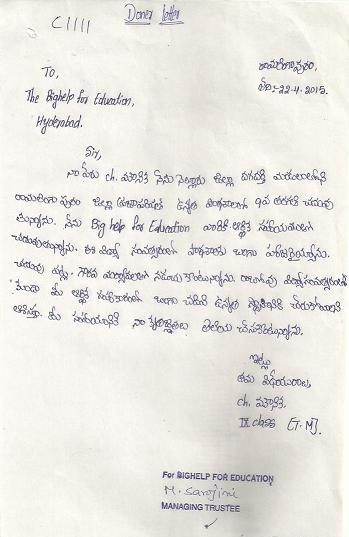 Donor Letter
C1111
రామలింగాపురం,
తేది:-22-4-2015.
To,
The Bighelp for Education,
Hyderabad.
Sir,
నా పేరు ch. మౌనిక నేను నెల్లూరు జిల్లా దగదర్తి మండలంలోని
రామలింగాపురం జిల్లా పరిషత్ ఉన్నత పాఠశాలలో 9వ తరగతి చదువు
తున్నాను. నేను Big help for Education వారికి ఆర్థిక సహాయంతో
చదువుతున్నాను. ఈ విద్యా సంవత్సరంలో పాఠశాలకు బాగా
చదువు పట్ల నడుచుకొంటున్నాను. రాబోవు విద్యాసంవత్సరంలో
మీ ఆర్థిక సహకారంతో బాగా చదివి ఉన్నత స్థితికి చేరుకోవాలని
ఆశిస్తూ. మీ సహాయానికి నా కృతజ్ఞతలు తెలియ చేసుకుంటున్నాను.
ఇట్లు
తమ విధేయురాలు,
ch. మౌనిక,
IX class [T.M].
For BIGHELP FOR EDUCATION
M. Sarojini
MANAGING TRUSTEE